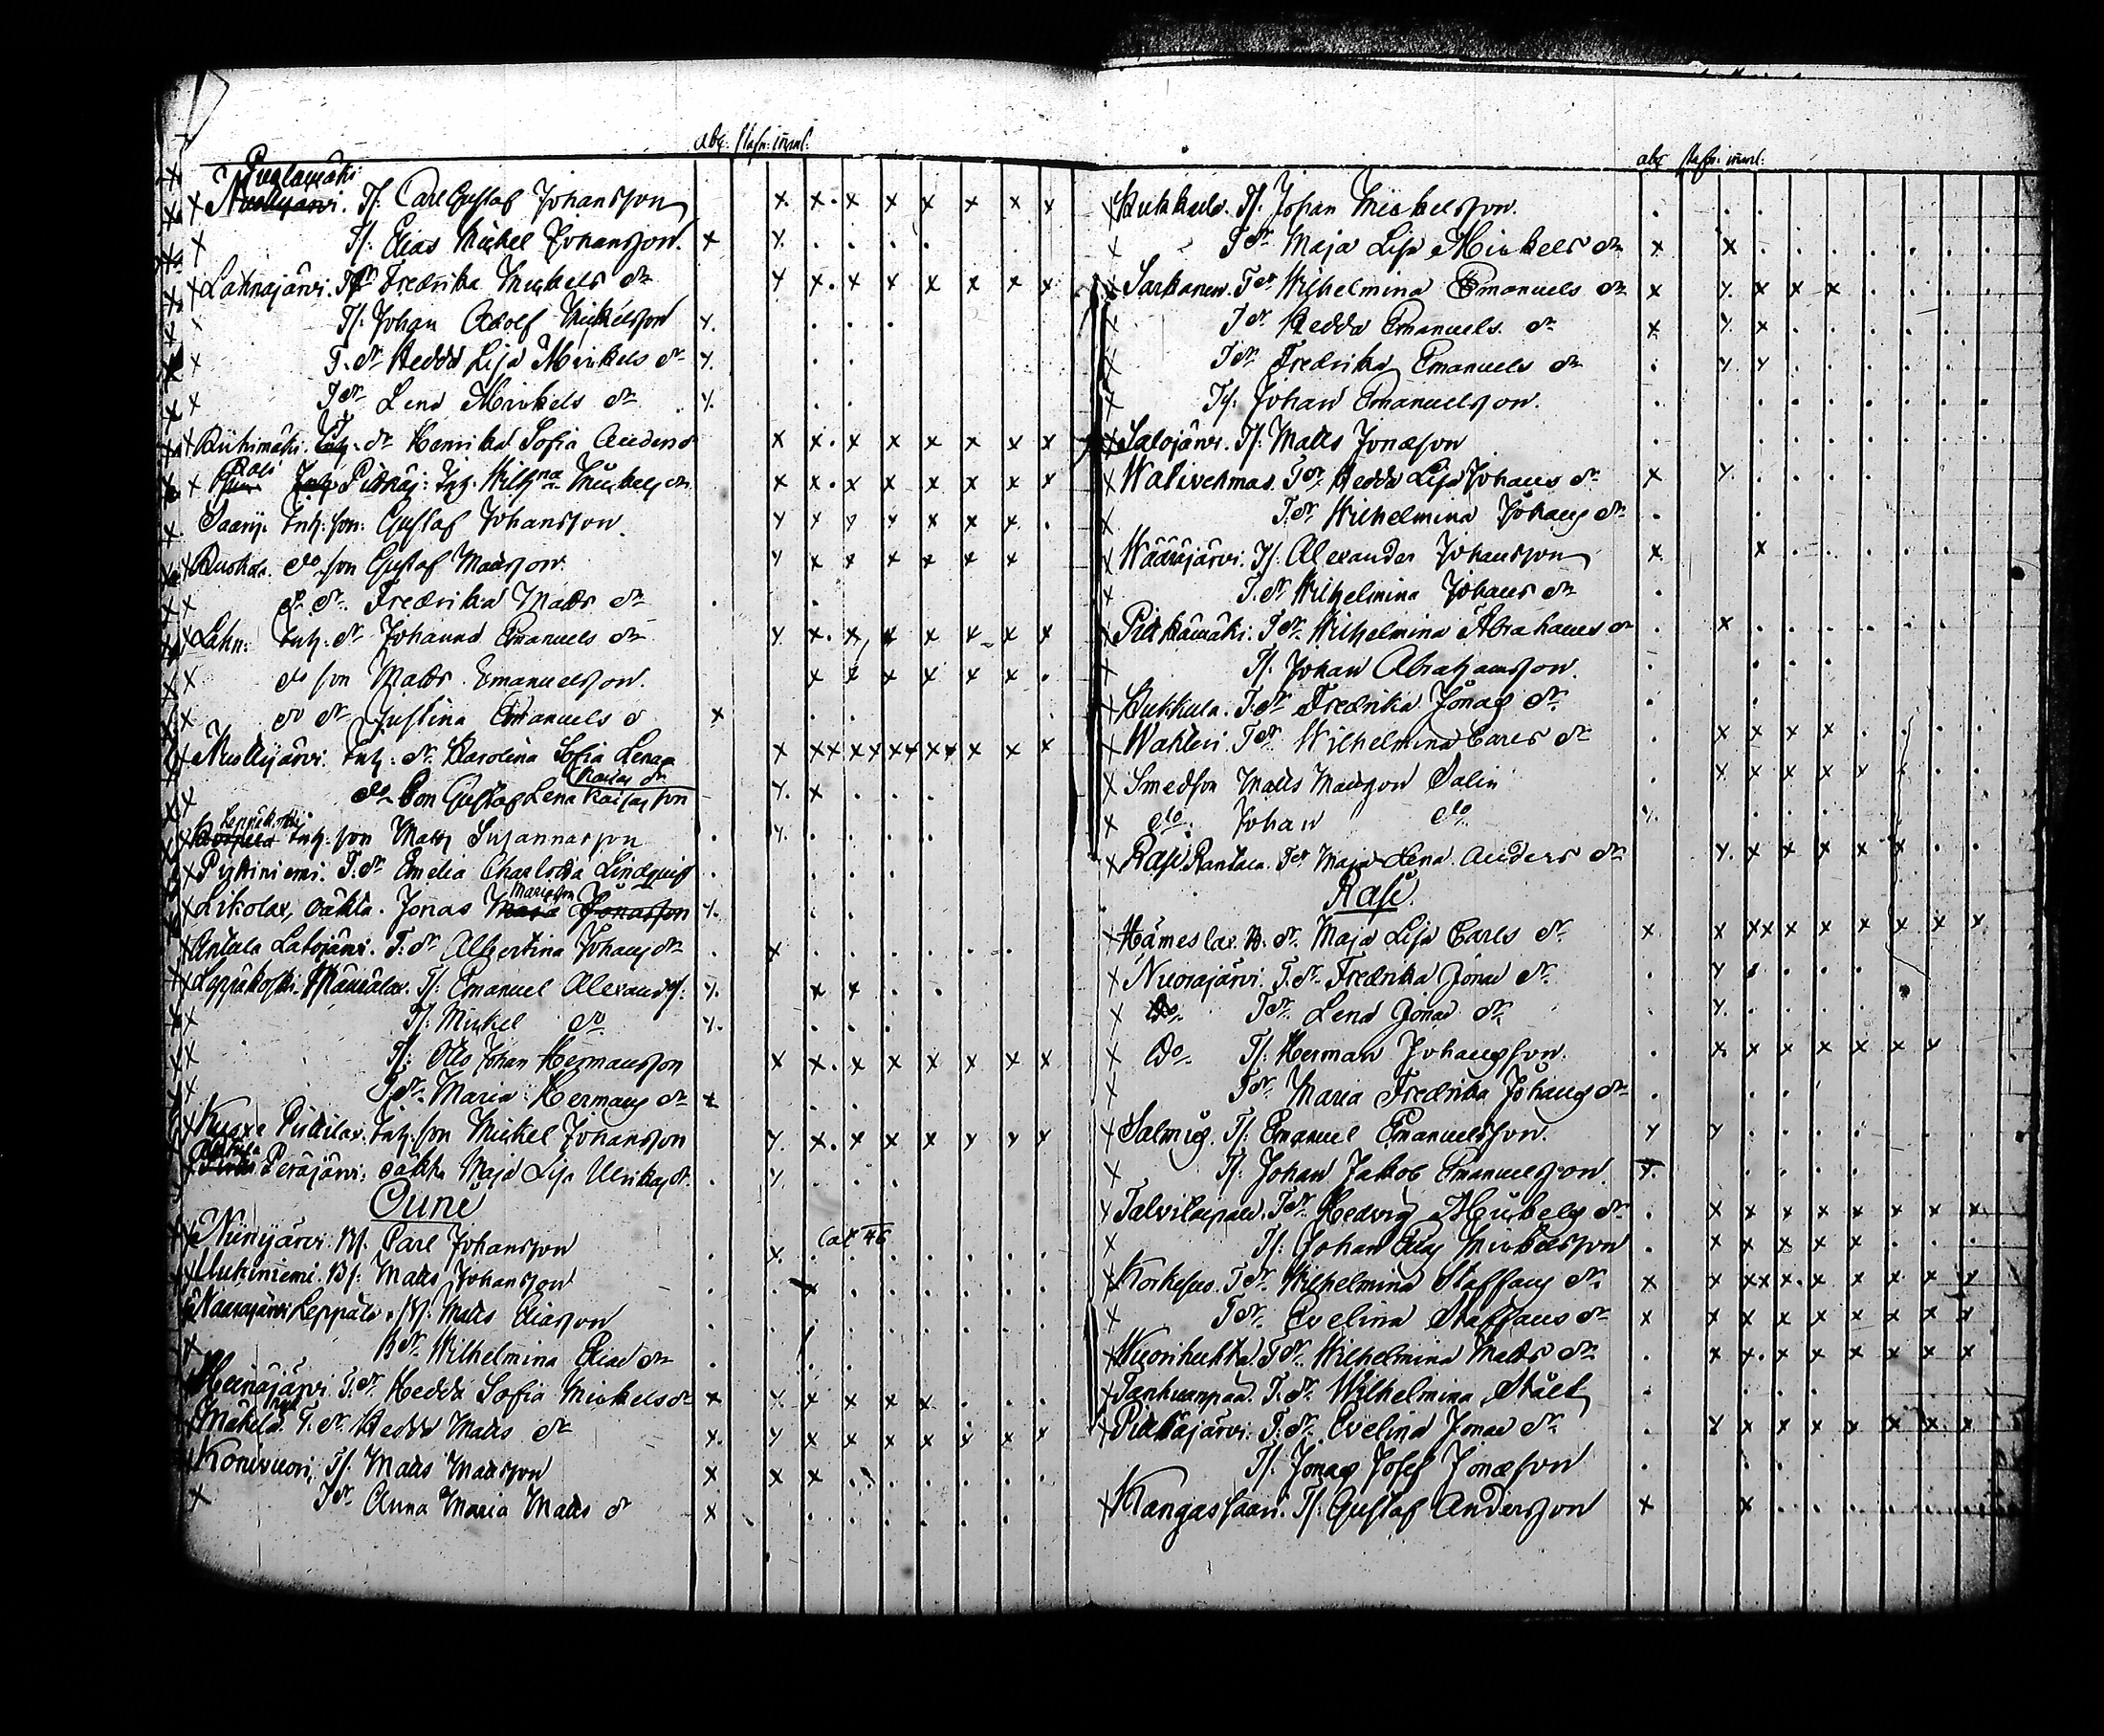 abc stafn: innanl:
Puolamäki
Nuolijärvi. Tj. Carl Gustaf Johansson
Tj: Elias Mickel Johansson.
Lahnajärvi. T dr Fredrika Mickels dr
Tj: Johan Adolf Mickelsson
T. dr Hedda Lisa Mickels dr
T dr Lena Mickels dr
Riihimäki. dr Henrika Sofia Anders d
Rasi Pitkäj: Inh. Wilhna Mickels dr
Saarij. Inh: son: Gustaf Johansson.
Ruokola. do son Gustaf Mattsson
do dr. Fredrika Matts dr
Lahn: Inh. dr Johanna Emanuels dr
do son Matts Emanuelsson.
do dr Justina Emanuels d
Nuolijärvi. Inh: dr. Karolina Sofia Lena
Kaisas dr
do Son Gustaf Lena Kaisas son
Leppäkoski
Inh. son Matts Susannasson
Pyttiniemi. T. dr Emelia Charlotta Lindqvist
Likolax, Jonas Mariasson
Anttila Latojärvi. T. dr Albertina Johans dr
Leppäkoski Tj: Emanuel Alexanders:
Tj: Mickel do
Tj: Otto Johan Hermansson
T dr. Maria Hermans dr
Inh. son Mickel Johansson
Peräjärvi. Maja Lisa Ulrikas dr.
Oune
Niinijärvi. Bj. Carl Johansson
Cat 46
Uukiniemi. Bj: Matts Johansson
Leppälä. Bj. Matts Eliasson
B dr. Wilhelmina Elias dr
Heinäjärvi. T. dr. Hedda Sofia Mickels dr
Mäkelä. T. dr. Hedda Matts dr
Konivuori. Tj. Matts Mattsson
T dr. Anna Maria Matts dr
abc stafn: innanl:
Kukkula. Tj. Johan Mickelsson.
T dr. Maja Lisa Mickels dr
Sarkanen. T dr. Wilhelmina Emanuels dr
T dr. Hedda Emanuels dr
T dr. Fredrika Emanuels dr
Tj. Johan Emanuelsson.
Salojärvi. Tj. Matts Jonasson
Walivehmas. T dr. Hedda Lisa Johans dr
T. dr. Wilhelmina Johans dr
Wääräjärvi. Tj. Alexander Johansson
T. dr Wilhelmina Johans dr
Pitkämäki. T dr. Wilhelmina Abrahams dr
Tj. Johan Abrahamsson.
Kukkula. T. dr Fredrika Jonas dr
Wahteri T dr. Wilhelmina Carls dr
Smedson Matts Mattsson Salin
do. Johan do
Rasi, Rantala. T dr Maja Lena Anders dr
Rasi.
Hämeslax. B. dr. Maja Lisa Carls dr.
Nuorajärvi. T. dr. Fredrika Jonas dr.
Do. T dr. Lena Jonas dr.
Do. Tj. Herman Johansson.
T dr. Maria Fredrika Johans dr
Salmis. Tj. Emanuel Emanuelsson.
Tj. Johan Jakob Emanuelsson.
Talvilaspala. T dr. Hedvig Mickels dr.
Tj. Johan Elias Mickelsson
Korkesuo. T dr. Wilhelmina Staffans dr.
T dr. Evelina Staffans dr
Wuorikukka. T dr. Wilhelmina Matts dr
Tanhuanpää. T. dr. Wilhelmina Stålt
Pitkäjärvi. T. dr. Evelina Jonas dr
Tj. Jonas Josef Jonasson
Kangassaari. Tj. Gustaf Andersson